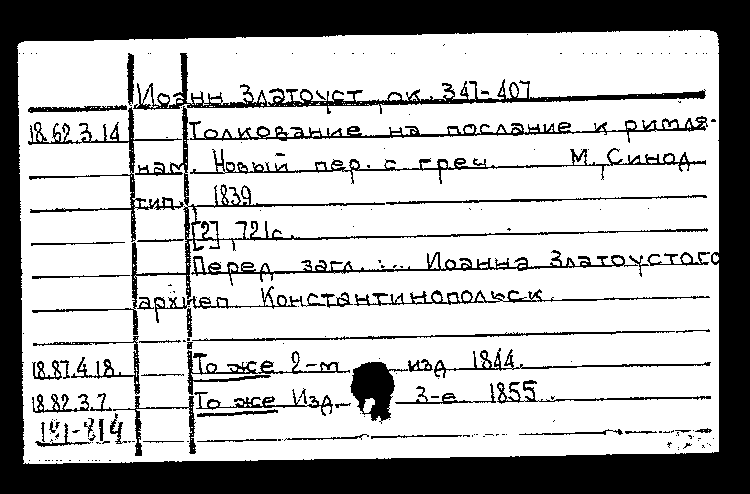 Иоанн Златоуст, ок. 347-407
18.62.3.14 Толкование на послание к римля-
нам. Новый пер. с греч. М., Синод.
тип., 1839.
[2], 721с.
Перед загл.: ... Иоанна Златоустого
архиеп. Константинопольск.
18.87.4.18. То же 2-м изд 1844.
18.82.3.7. То же Изд. 3-е 1855.
191-814